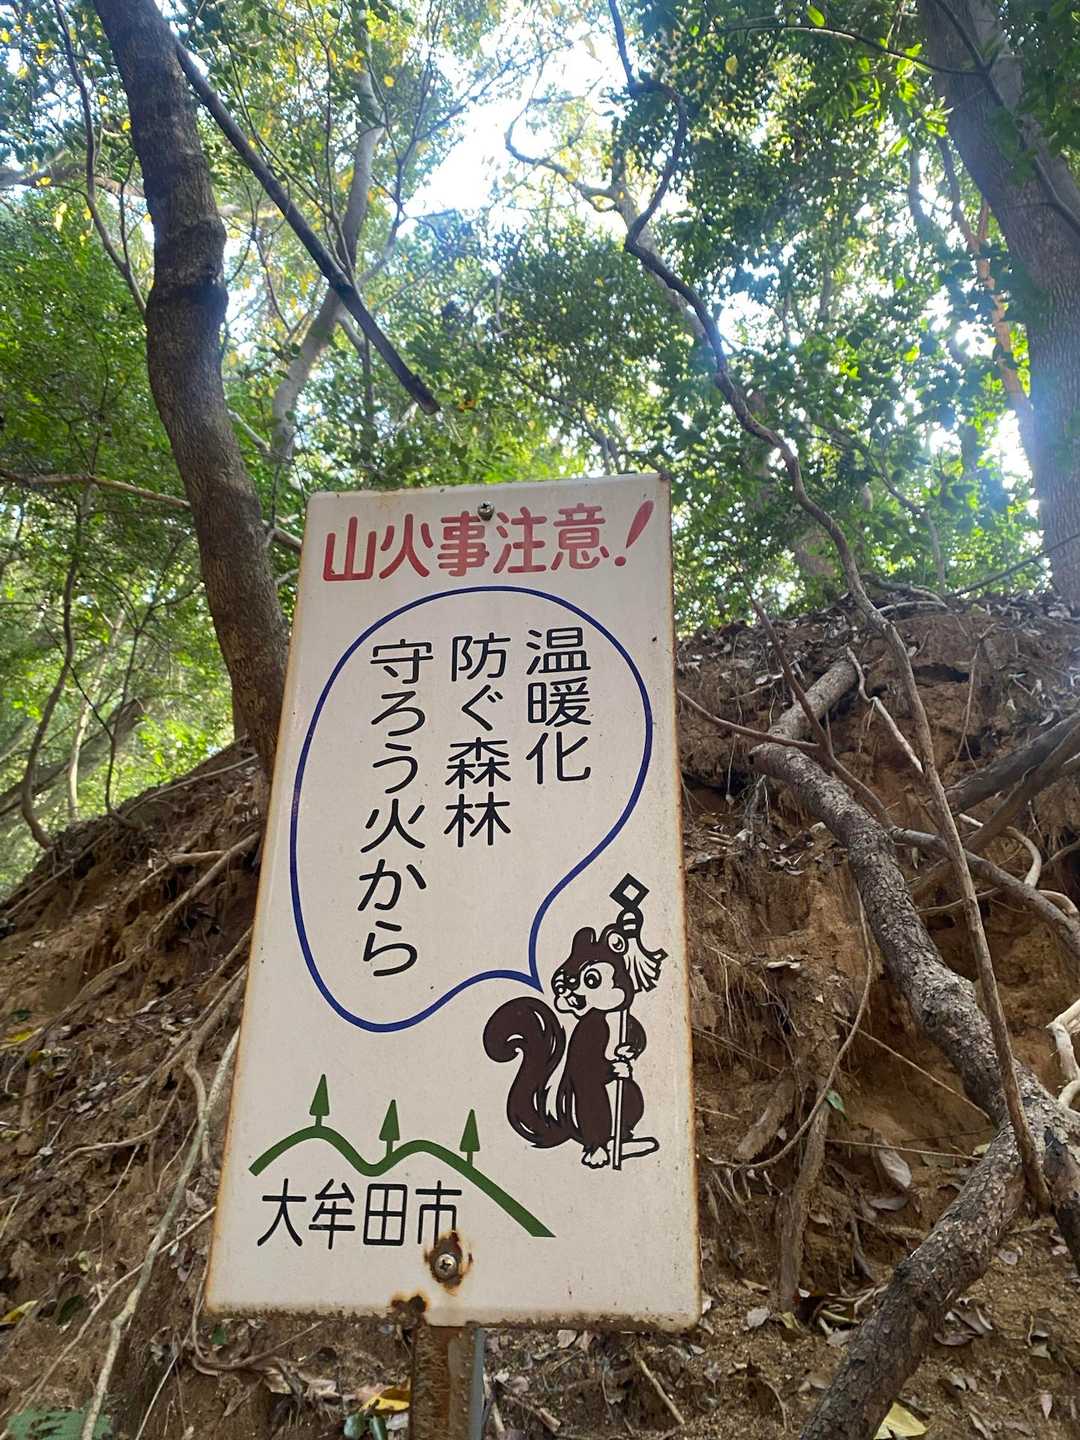 山火事注意!
温暖化
防ぐ森林
守ろう火から
大牟田市